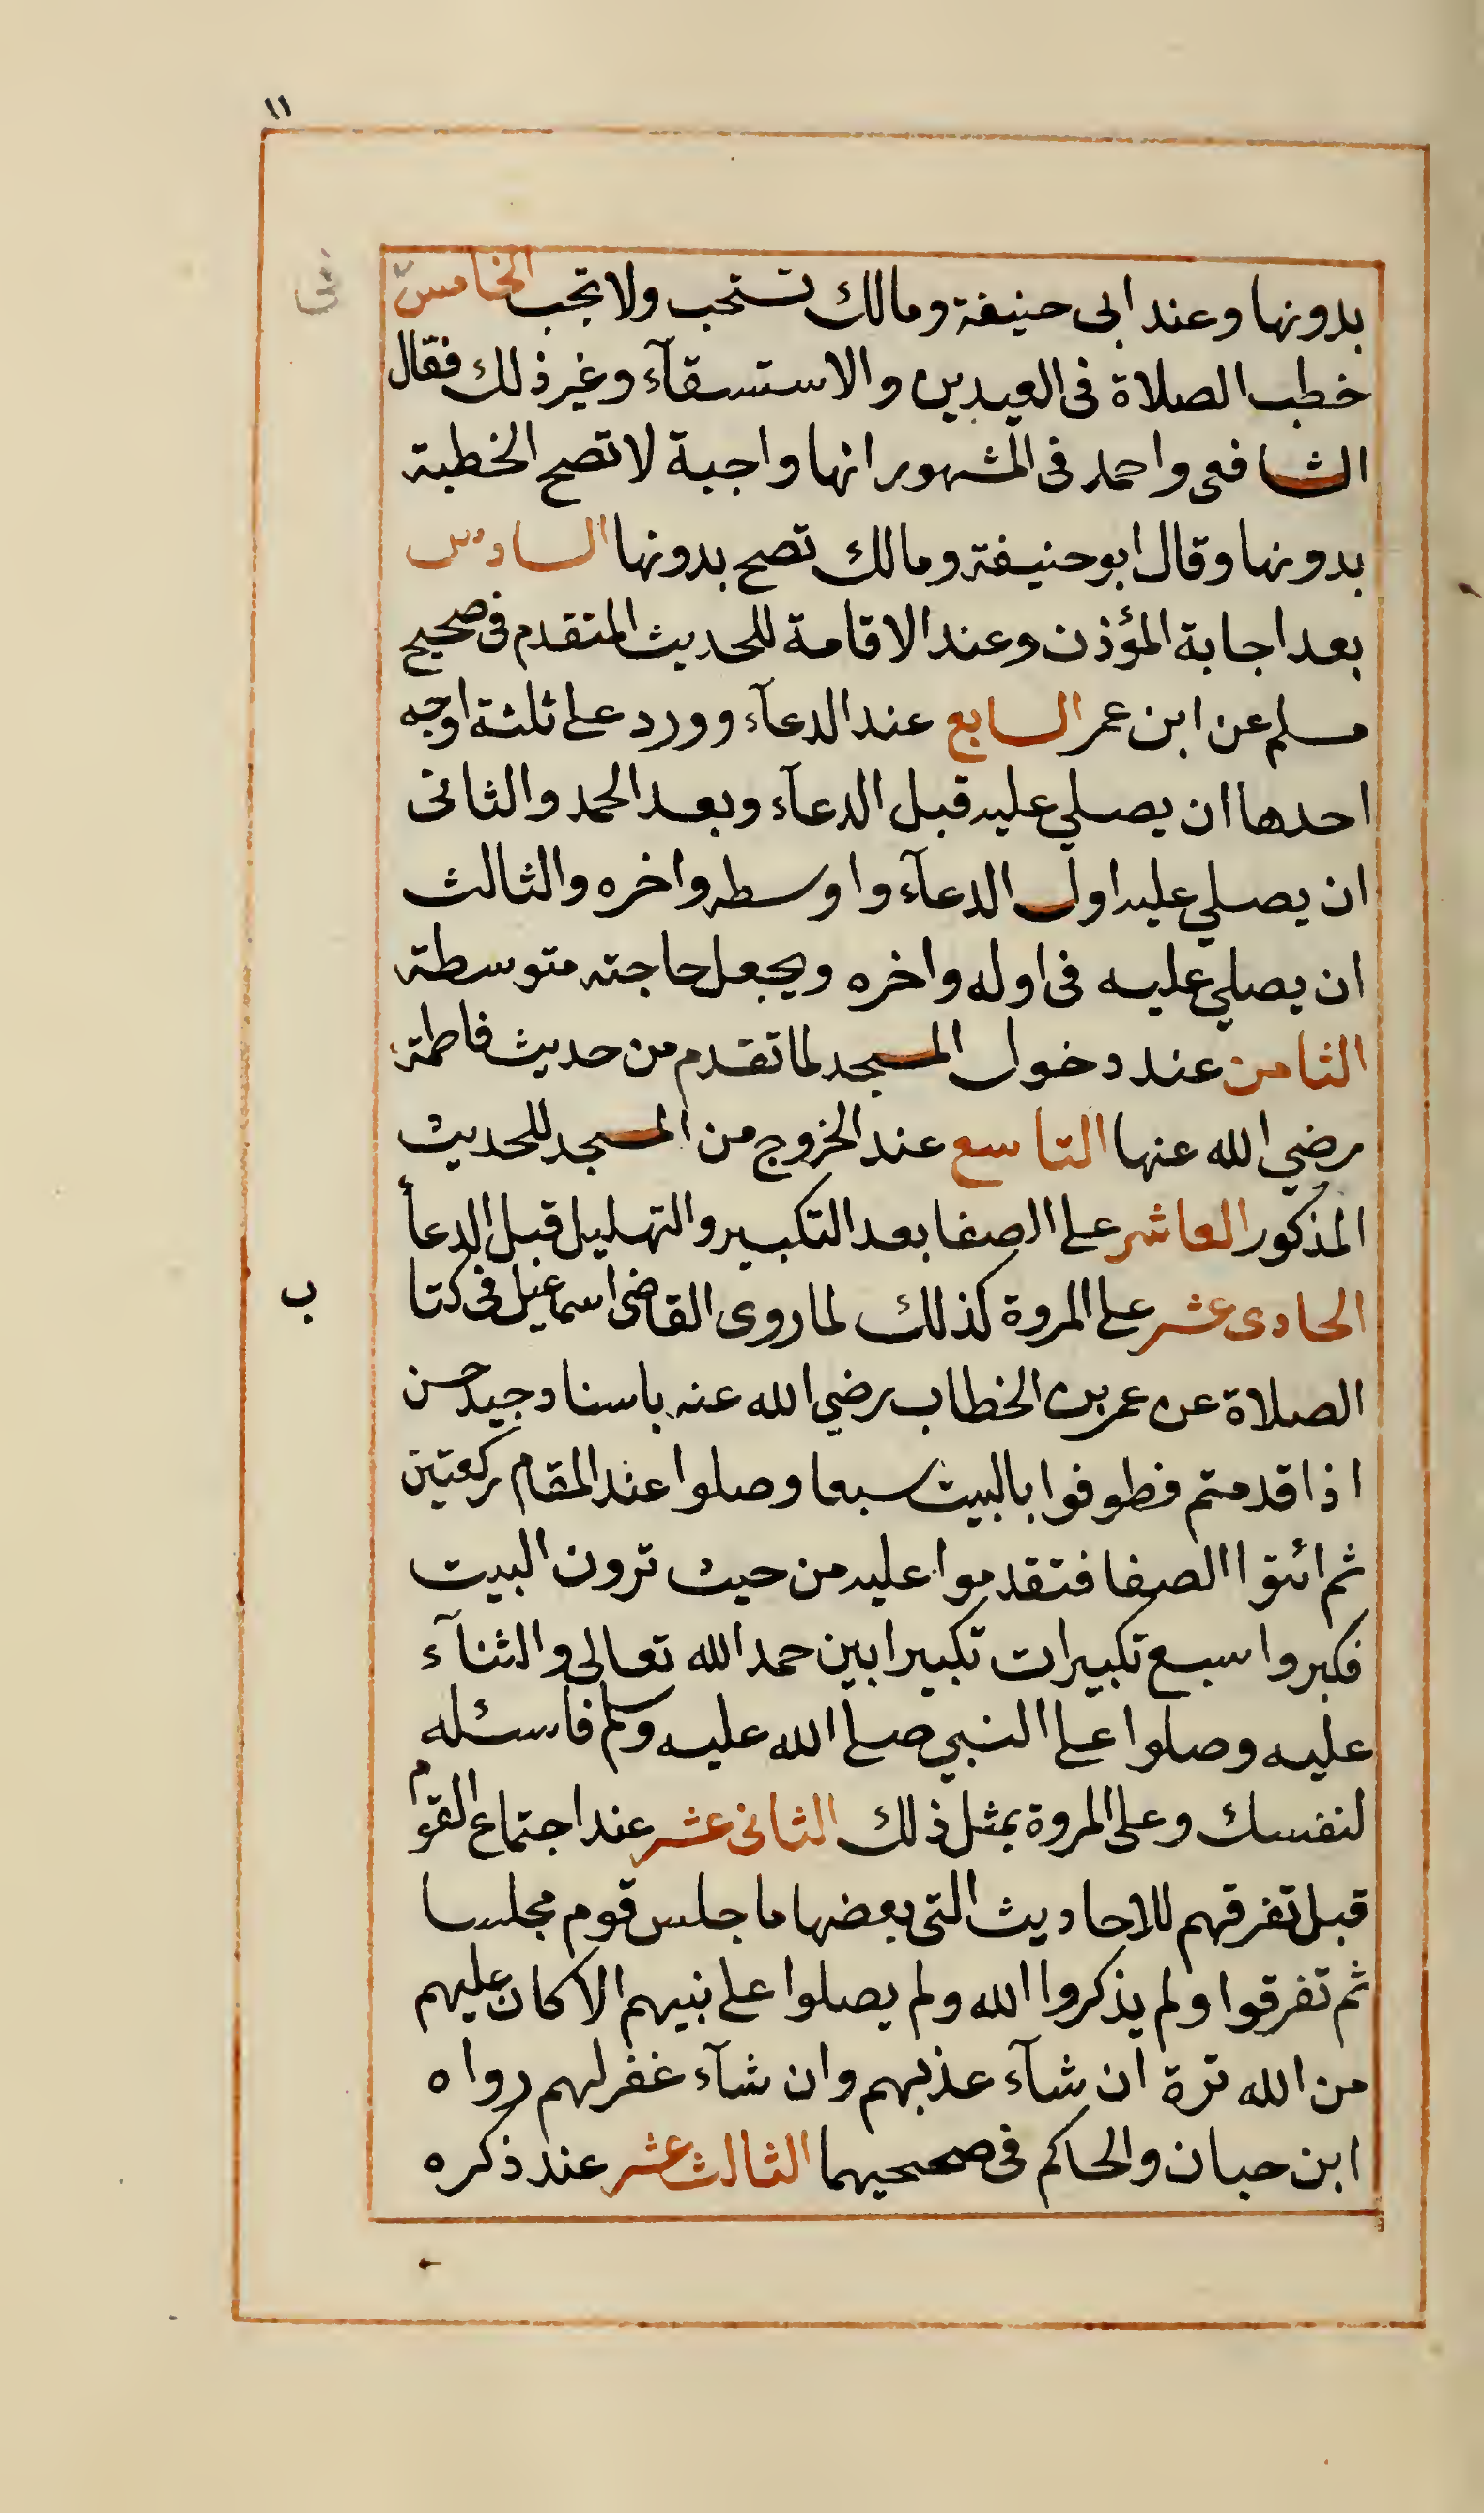 ١١
بدونها وعند ابى حنيفة ومالك تستحب ولا تجب الخامس
فى
خطب الصلاة فى العيدين والاستسقآء وغير ذلك فقال
الشافعى واحمد فى المشهور انها واجبة لا تصح الخطبة
بدونها وقال ابو حنيفة ومالك تصح بدونها السادس
بعد اجابة المؤذن وعند الاقامة للحديث المتقدم فى صحيح
مسلم عن ابن عمر السابع عند الدعآء وورد على ثلثة اوجه
احدها ان يصلي عليه قبل الدعآء وبعد الحمد والثانى
ان يصلي عليه اول الدعآء واوسطه واخره والثالث
ان يصلي عليه فى اوله واخره ويجعل حاجته متوسطة
الثامن عند دخول المسجد لما تقدم من حديث فاطمة
رضي الله عنها التاسع عند الخروج من المسجد للحديث
المذكور العاشر على الصفا بعد التكبير والتهليل قبل الدعأ
الحادى عشر على المروة كذلك لما روى القاضى اسماعيل فى كتا
ب
الصلاة عن عمر بن الخطاب رضي الله عنه باسناد جيد حسن
اذا قدمتم فطوفوا بالبيت سبعا وصلوا عند المقام ركعتين
ثم ائتوا الصفا فتقدموا عليه من حيث ترون البيت
فكبروا سبع تكبيرات تكبيرا بين حمد الله تعالى والثنآء
عليه وصلوا على النبي صلى الله عليه وسلم فاسئله
لنفسك وعلى المروة بمثل ذلك الثانى عشر عند اجتماع القوم
قبل تفرقهم للاحاديث التى بعضها ما جلس قوم مجلسا
ثم تفرقوا ولم يذكروا الله ولم يصلوا على نبيهم الا كان عليهم
من الله ترة ان شآء عذبهم وان شآء غفر لهم رواه
ابن حبان والحاكم فى صحيحيهما الثالث عشر عند ذكره